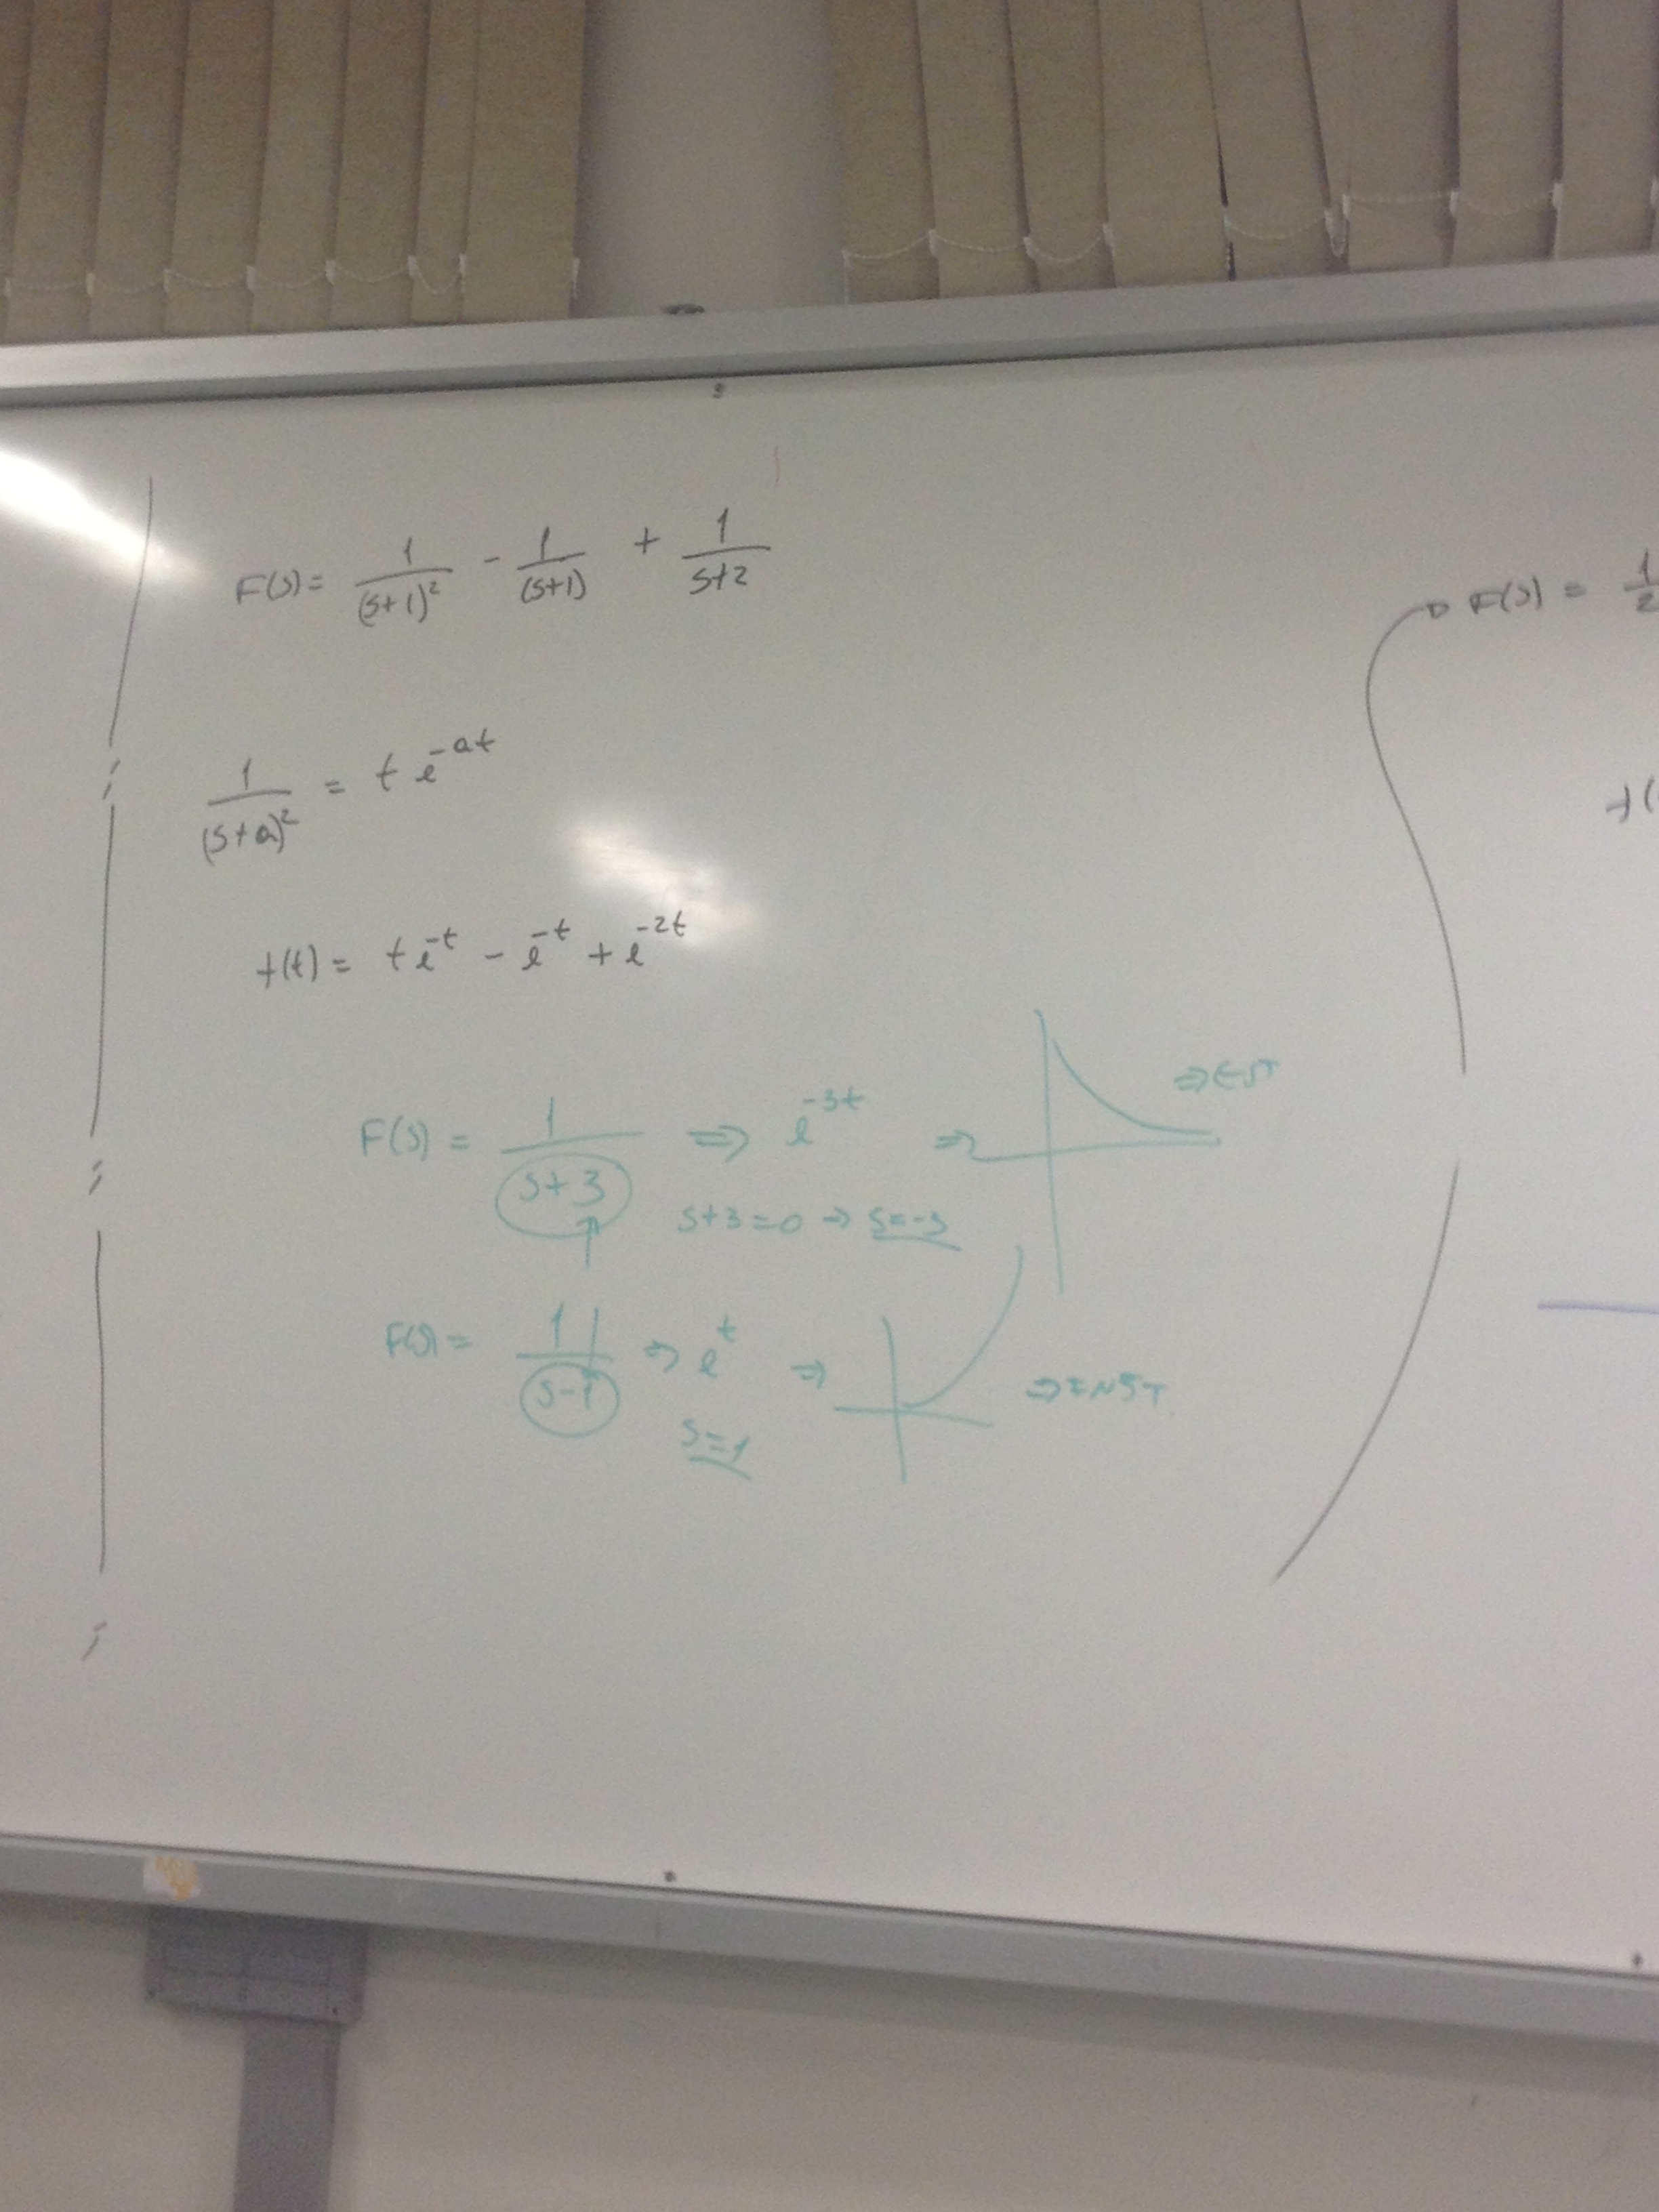 F(s) = 1/(s+1)² - 1/(s+1) + 1/s+2
1/(s+a)² = t e^-at
f(t) = t e^-t - e^-t + e^-2t
F(s) = 1/s+3 ⇒ e^-3t ⇒ ⇒ EST
s+3=0 → s=-3
F(s) = 1/s-1 ⇒ e^t ⇒ ⇒ INST
s=1
F(s) = 1/2
f(